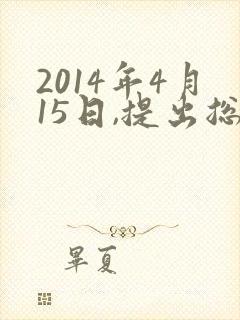 2014年4月
15日,提出总
畢夏